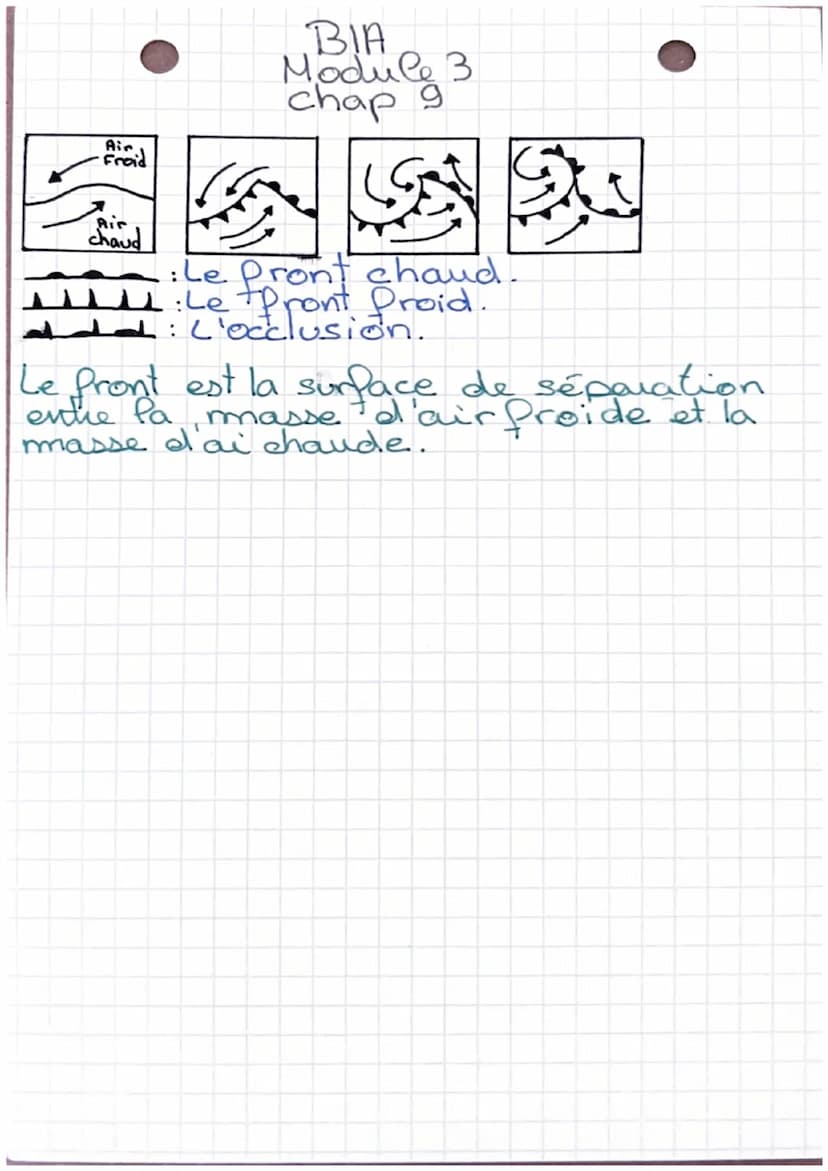 BIA
Module 3
chap 9
Air
Froid
Air
chaud
: Le front chaud.
: Le front froid.
: L'occlusion.
Le front est la surface de séparation
entre la masse d'air froide et la
masse d'ai chaude.